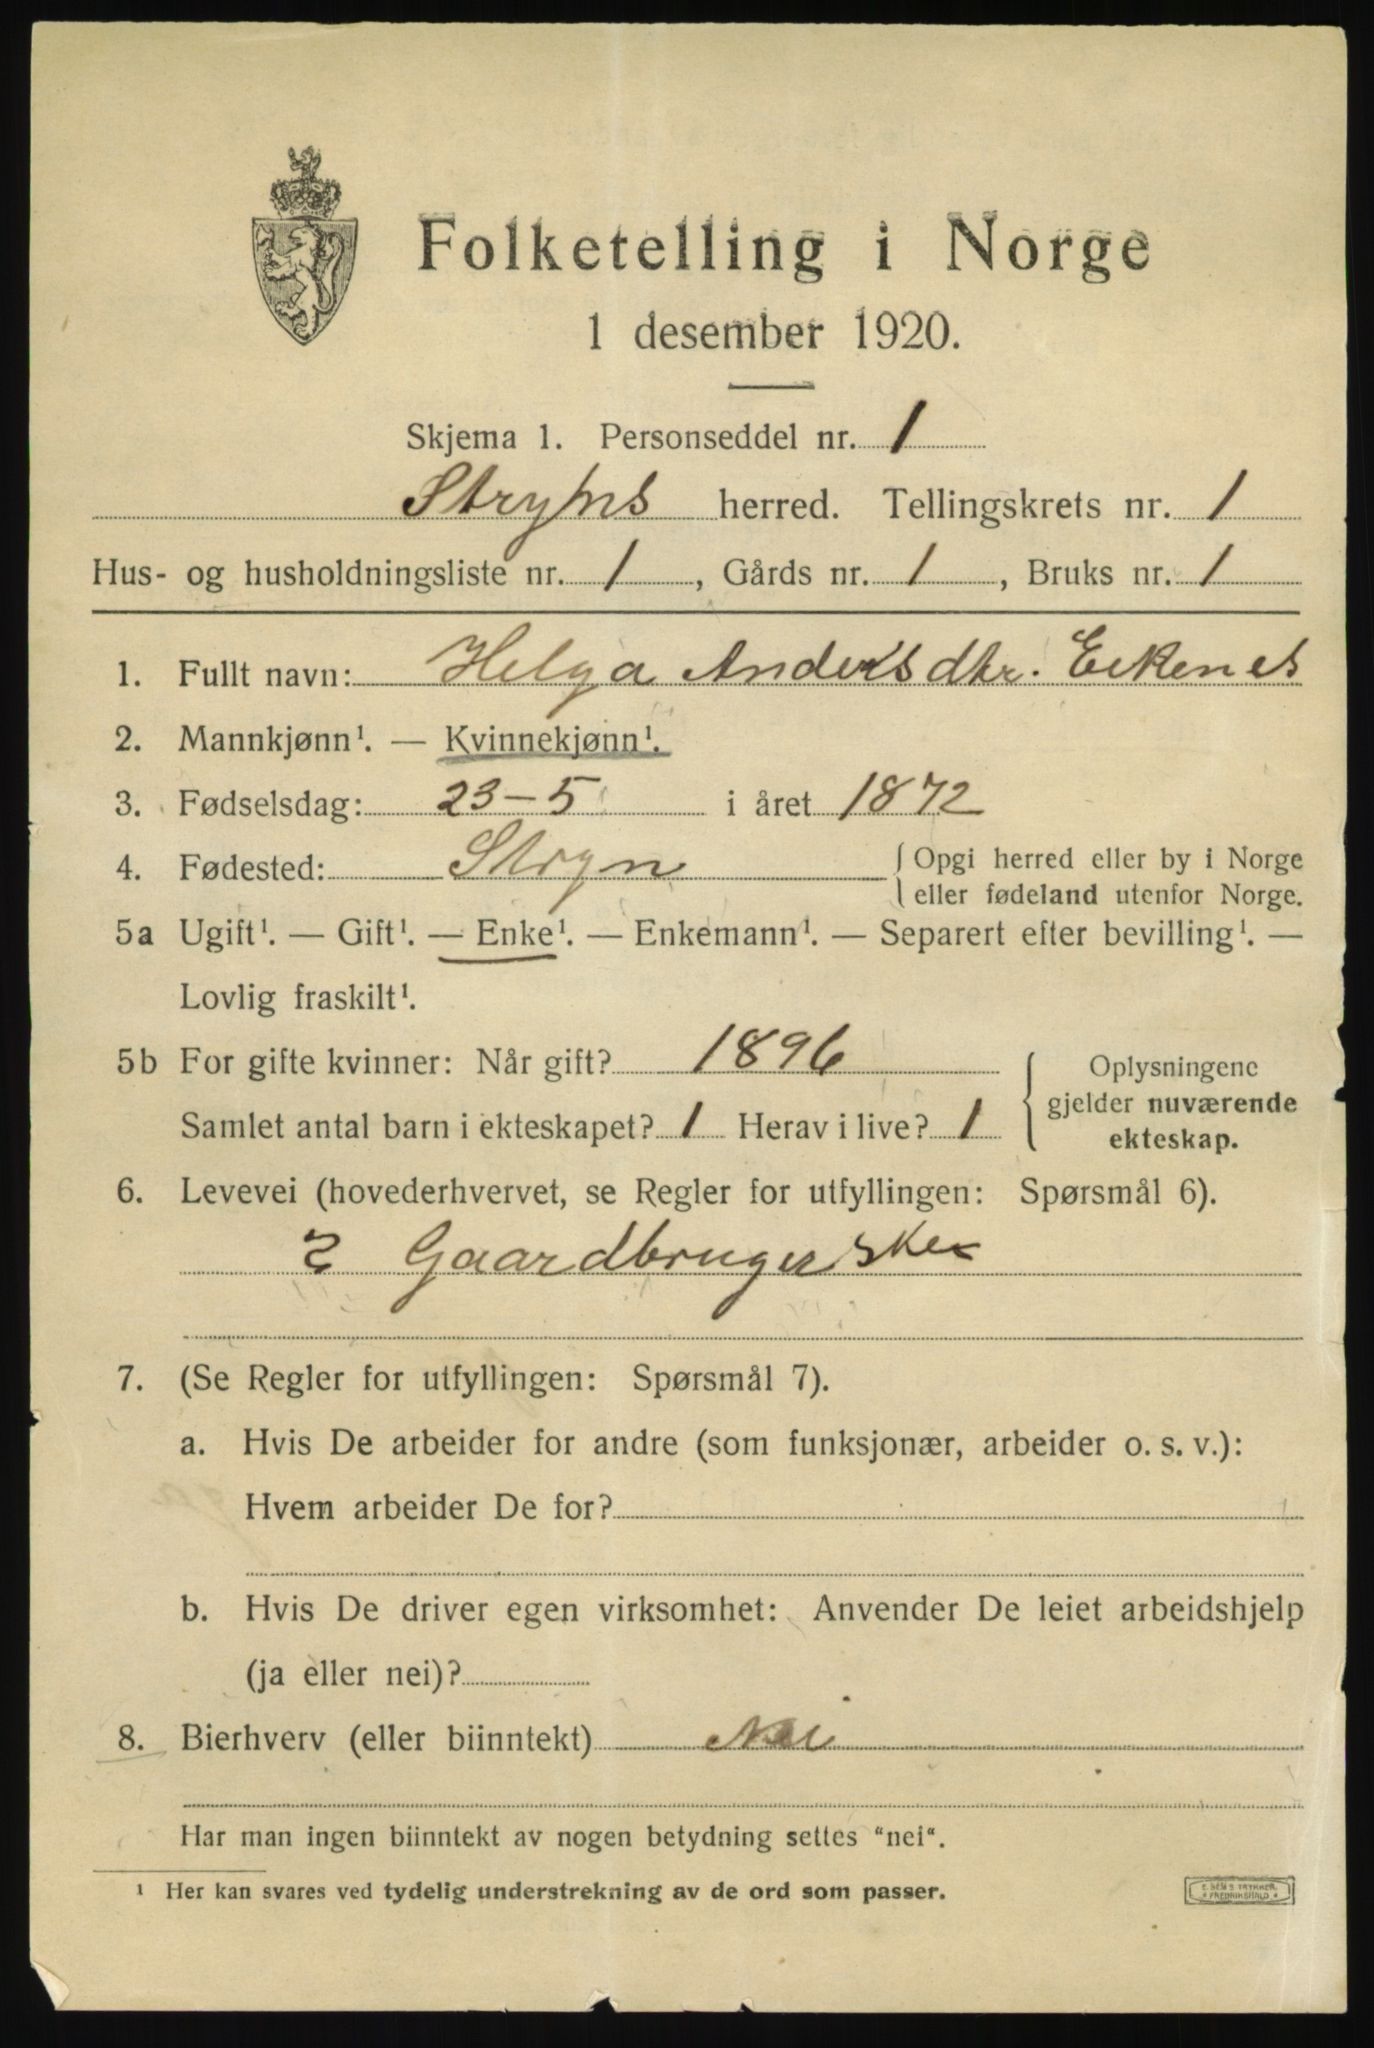 Folketelling i Norge
1 desember 1920.
Skjema 1. Personseddel nr. 1
Stryns herred. Tellingskrets nr. 1
Hus- og husholdningsliste nr. 1, Gårds nr. 1, Bruks nr. 1
1. Fullt navn: Helga Andersdtr. Eikenes
2. Mannkjønn¹. — Kvinnekjønn¹.
3. Fødselsdag: 23-5 i året 1872
4. Fødested: Stryn { Opgi herred eller by i Norge
eller fødeland utenfor Norge.
5a Ugift¹. — Gift¹. — Enke¹. — Enkemann¹. — Separert efter bevilling¹. —
Lovlig fraskilt¹.
5b For gifte kvinner: Når gift? 1896
Samlet antal barn i ekteskapet? 1 Herav i live? 1
Oplysningene
gjelder nuværende
ekteskap.
6. Levevei (hovederhvervet, se Regler for utfyllingen: Spørsmål 6).
Gaardbrugerske
7. (Se Regler for utfyllingen: Spørsmål 7).
a. Hvis De arbeider for andre (som funksjonær, arbeider o. s. v.):
Hvem arbeider De for?
b. Hvis De driver egen virksomhet: Anvender De leiet arbeidshjelp
(ja eller nei)?
8. Bierhverv (eller biinntekt) Nei
Har man ingen biinntekt av nogen betydning settes “nei“.
¹ Her kan svares ved tydelig understrekning av de ord som passer.